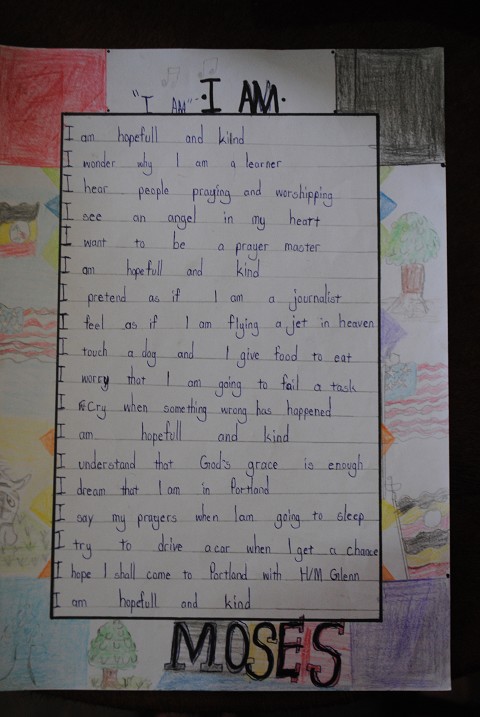 "I AM" - · I AM ·
I am hopefull and kiind
I wonder why I am a learner
I hear people praying and worshipping
I see an angel in my heart
I want to be a prayer master
I am hopefull and kind
I pretend as if I am a journalist
I feel as if I am flying a jet in heaven
I touch a dog and I give food to eat
I worry that I am going to fail a task
I Cry when something wrong has happened
I am hopefull and kind
I understand that God's grace is enough
I dream that I am in Portland
I say my prayers when I am going to sleep
I try to drive a car when I get a chance
I hope I shall come to Portland with H/M Glenn
I am hopefull and kind
MOSES